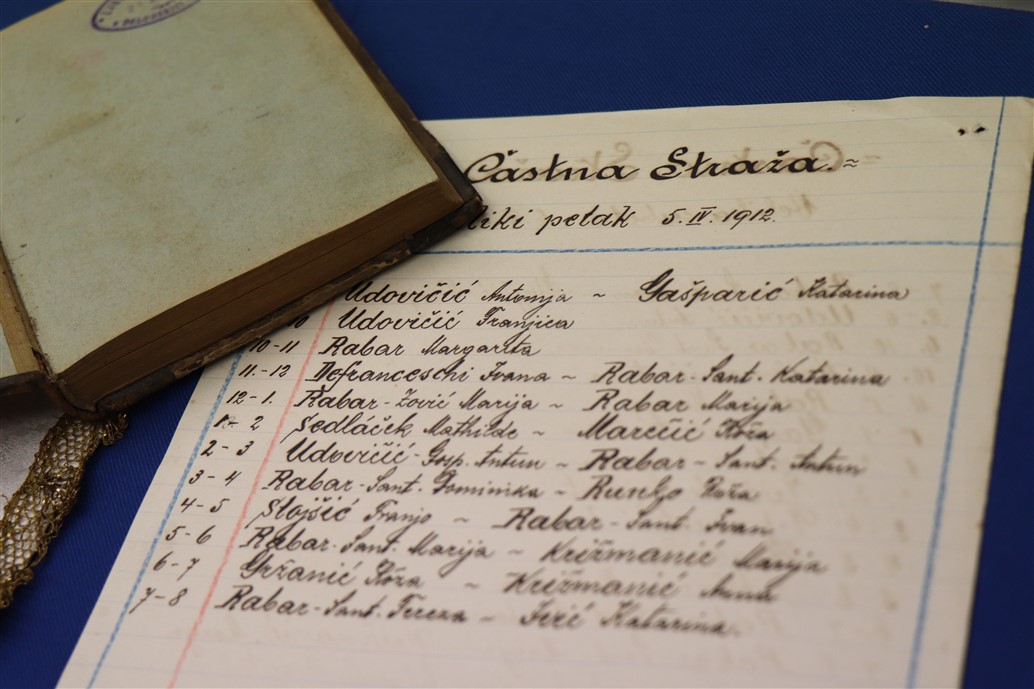 Častna Straža.
liki petak 5.IV. 1912.
Udovičić Antonija ~ Gašparić Katarina
10 Udovičić Franjica
10-11 Rabar Margarita
11.-12 Defranceschi Ivana ~ Rabar-Sant. Katarina
12-1. Rabar-Zović Marija ~ Rabar Marija
1- 2 Sedláček Mathilde ~ Róža
2-3 Udovičić-Gosp. Antun ~ Rabar-Sant. Antun
3-4 Rabar-Sant. Dominika ~ Ruža
4-5 Stojšić Franjo ~ Rabar-Sant. Ivan
5-6 Rabar-Sant. Marija ~ Križmanić Marija
6-7 Gržanić Róža ~ Križmanić
7-8 Rabar-Sant. Tereza ~ Katarina.